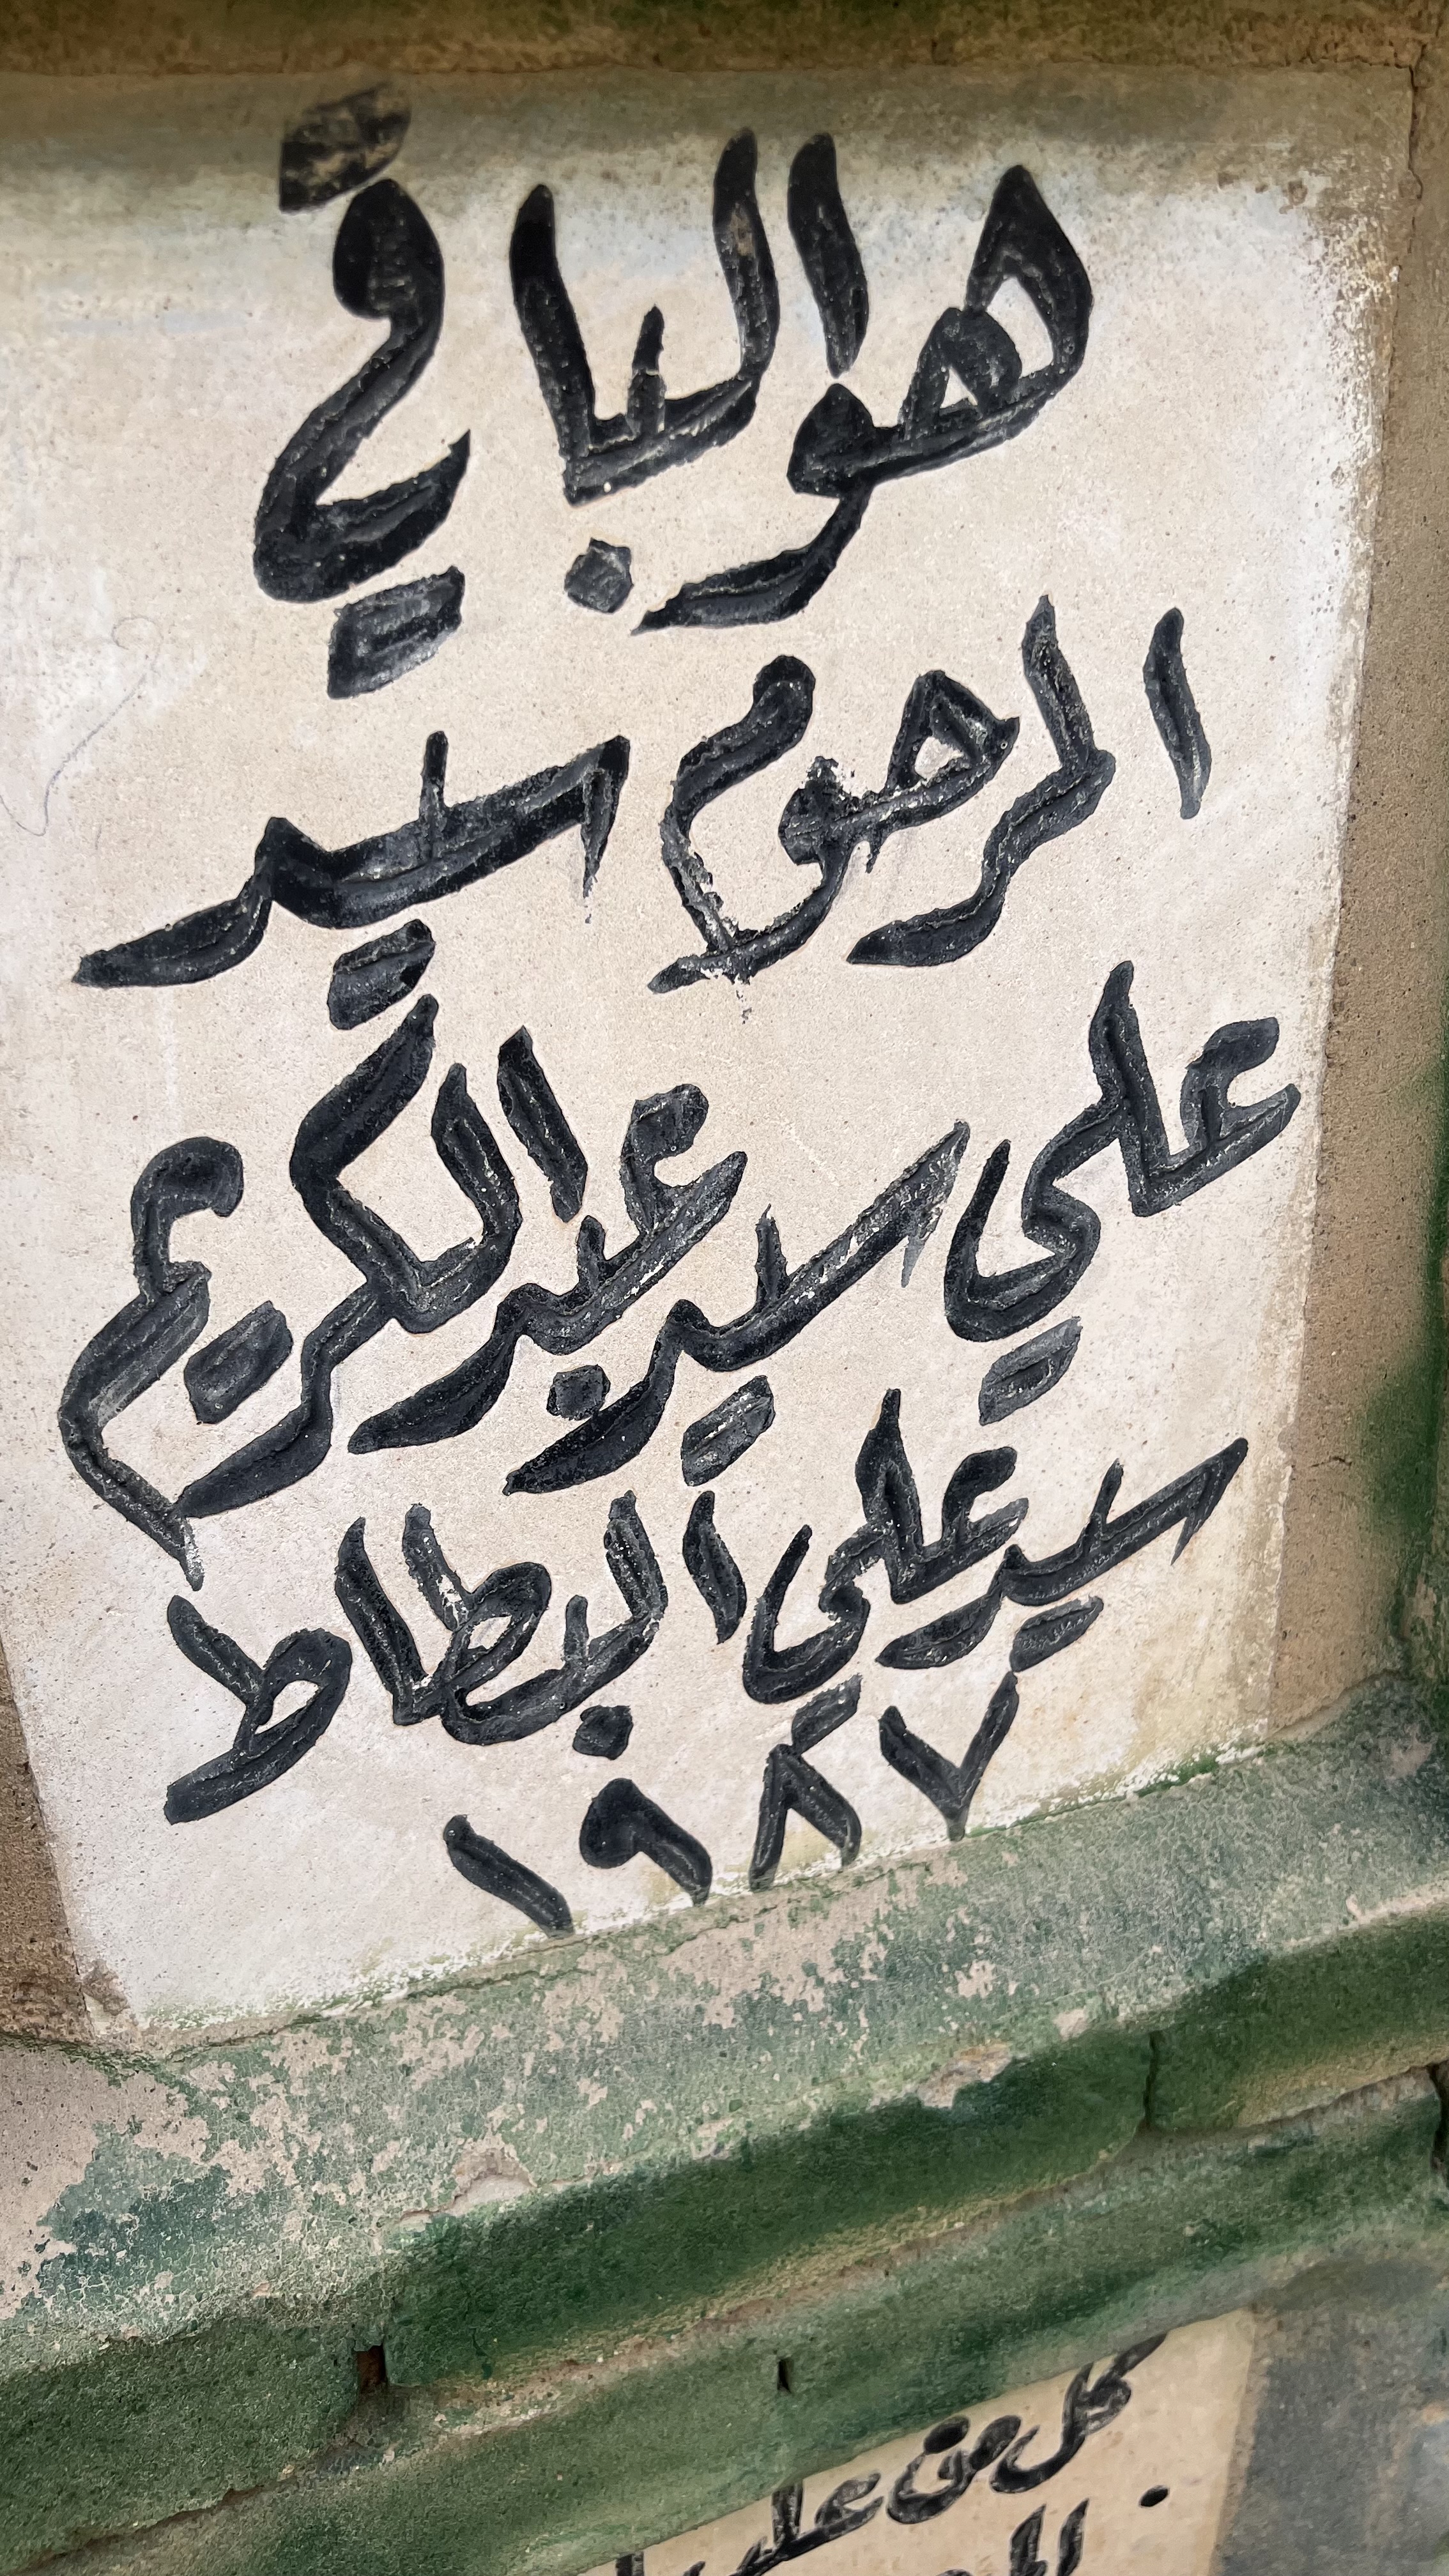 هو الباقي
المرحوم سيد
علي سيد عبد الكريم
سيد علي البطاط
١٩٨٧
كل من علـ